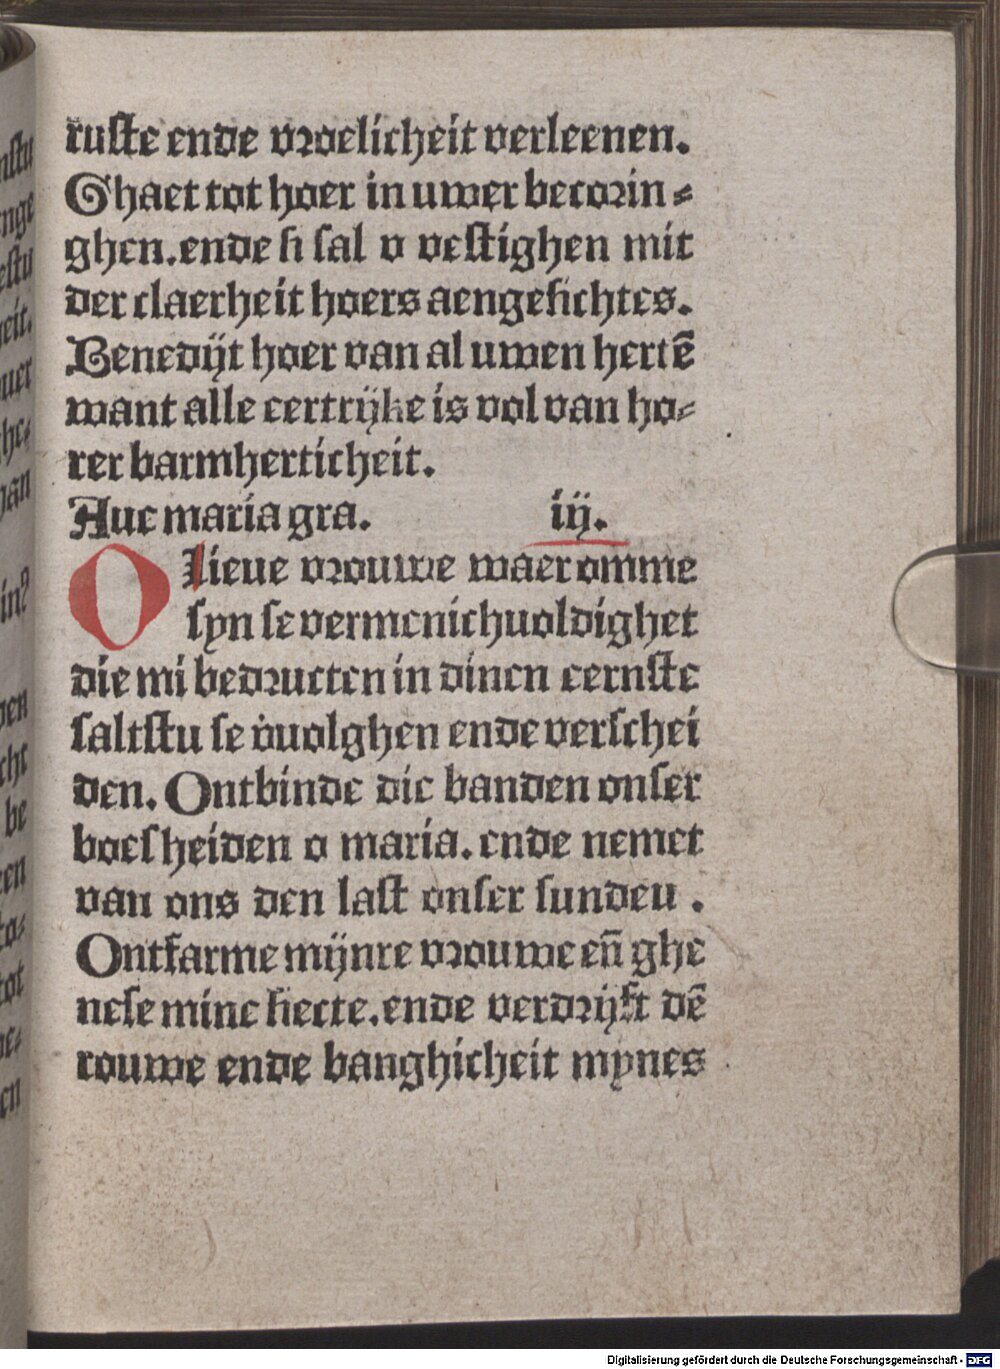 ruste ende vroelicheit verleenen.
Ghaet tot hoer in uwer becorin⸗
ghen. ende si sal v vestighen mit
der claerheit hoers aengesichtes.
Benedijt hoer van al uwen hertē
want alle eertrijke is vol van ho⸗
rer barmherticheit.
Aue maria gra. iij.
O lieue vrouwe waer omme
syn se vermenichuoldighet
die mi bedructen in dinen eernste
saltstu se v̇uolghen ende verschei
den. Ontbinde die banden onser
boesheiden o maria. ende nemet
van ons den last onser sundeu .
Ontfarme mijnre vrouwe en̄ ghe
nese mine siecte. ende verdrijft dē
rouwe ende banghicheit mynes
Digitalisierung gefördert durch die Deutsche Forschungsgemeinschaft - DFG